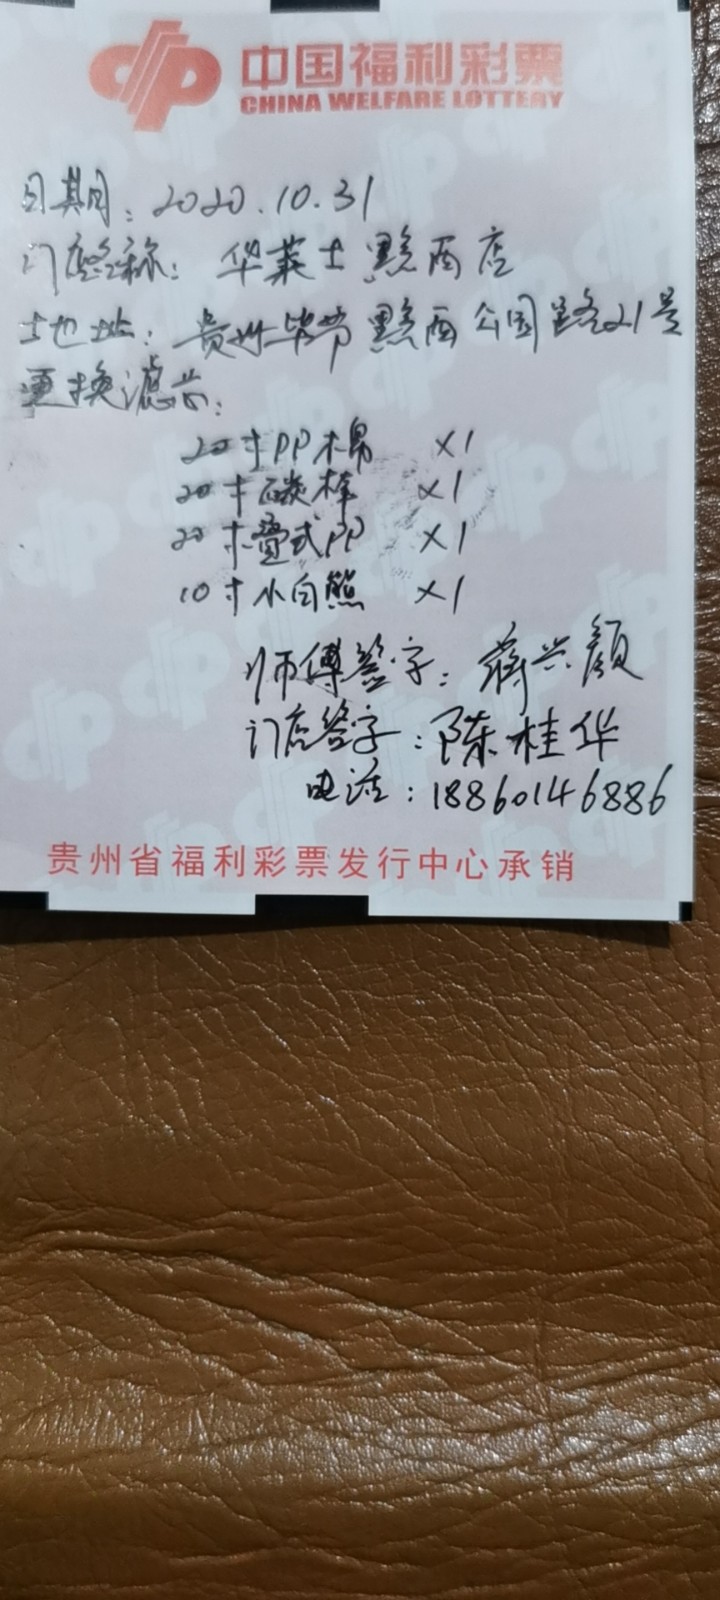 中国福利彩票
CHINA WELFARE LOTTERY
日期：2020.10.31
门店名称：华莱士黔西店
地址：贵州毕节黔西公园路21号
更换滤芯：
20寸PP棉 ×1
20寸碳棒 ×1
20寸叠式PP ×1
10寸小白熊 ×1
师傅签字：蒋兴颜
门店签字：陈桂华
电话：18860146886
贵州省福利彩票发行中心承销